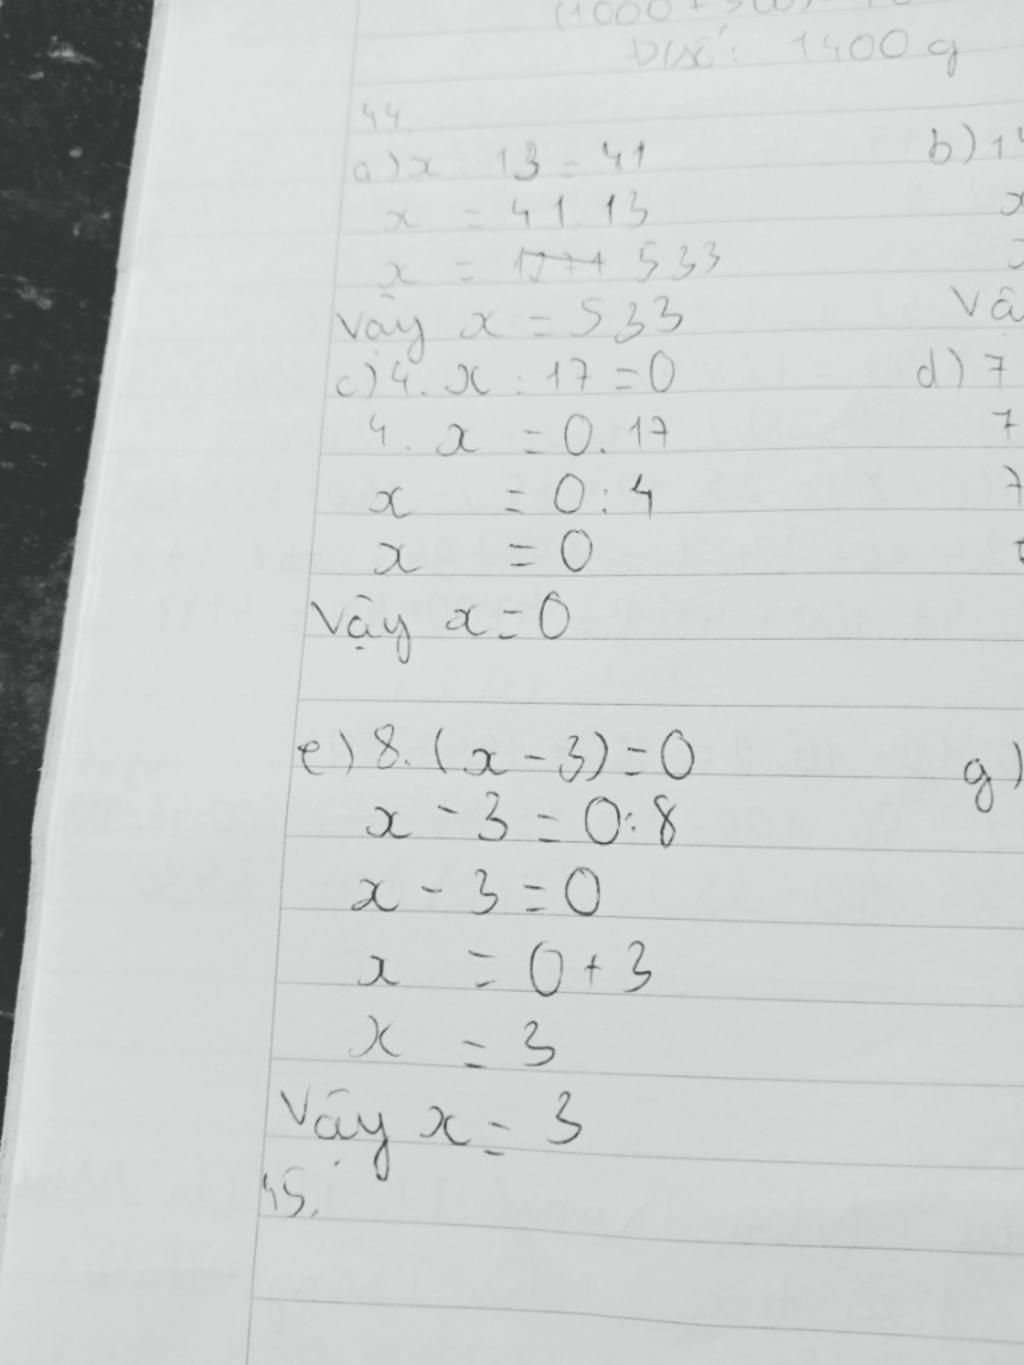 (1000 +
Đ/S: 1400 g
44.
a) x : 13 = 41
x = 41.13
x = 533
Vậy x = 533
c) 4. x : 17 = 0
4. x = 0. 17
x = 0 : 4
x = 0
Vậy x = 0
e) 8. (x - 3) = 0
x - 3 = 0 : 8
x - 3 = 0
x = 0 + 3
x = 3
Vậy x = 3
45.
b) 1
x
Vậ
d) 7
7
7
g)